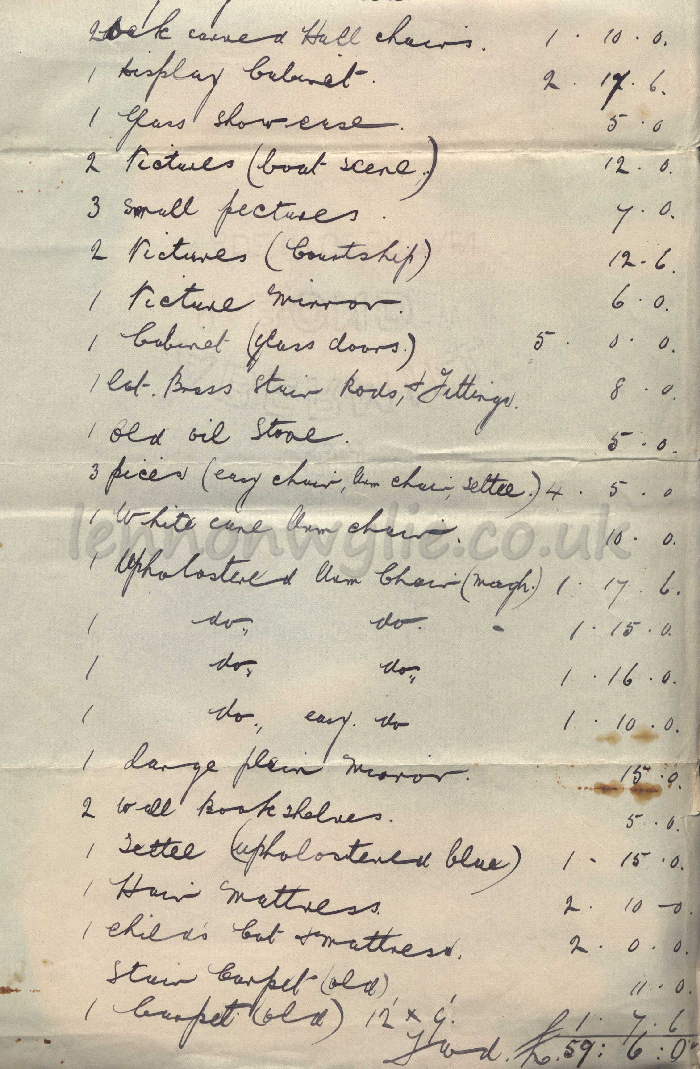 2 oak carved Hall chairs. 1 · 10 · 0.
1 Display Cabinet. 2 · 17 · 6.
1 Glass showcase. 5 · 0
2 Pictures (boat scene.) 12 · 0.
3 Small pictures. 7 · 0.
2 Pictures (Courtship) 12 - 6.
1 Picture Mirror. 6 · 0.
1 Cabinet (glass doors.) 5 · 0 · 0.
1 Lot. Brass Stair Rods, & Fittings. 8 · 0
1 Old oil Stove. 5 · 0.
3 pices (easy chair, Arm chair, settee.) 4 · 5 · 0
1 White cane Arm chair. 10 · 0.
lennonwylie.co.uk
1 Upholostered Arm Chair (mogh.) 1 · 17 · 6.
1 do., do. 1 · 15 · 0.
1 do., do., 1 · 16 · 0.
1 do., easy. do 1 · 10 · 0.
1 Large plain Mirror. 15 · 0.
2 wall Bookshelves. 5 · 0.
1 Settee (upholostered blue) 1 - 15 · 0.
1 Hair Mattress. 2 · 10 - 0.
1 Child's Cot & mattress. 2 · 0 · 0.
Stair Carpet (old) 11 · 0.
1 Carpet (old) 12' x 9'. 1 · 7 · 6
Fwd. £ 59 : 6 : 0